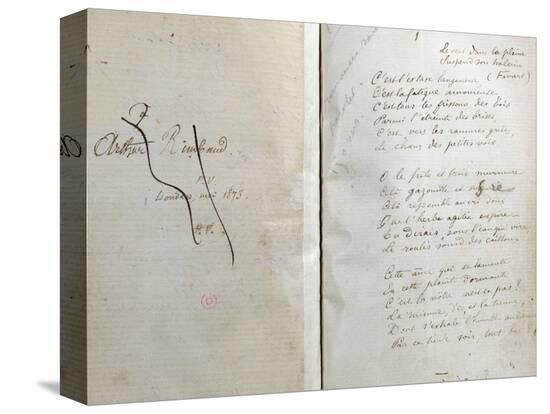 à
Arthur Rimbaud.
P.V
Londres, mai 1873.
P.V.
D
1
Le vent dans la plaine
Suspend son haleine
(Favart)
C'est l'extase langoureuse
C'est la fatigue amoureuse
C'est tous les frissons des bois
Parmi l'étreinte des brises,
C'est, vers les ramures grises,
Le chœur des petites voix
O le frêle et frais murmure
Cela gazouille et susurre
Cela ressemble au cri doux
Que l'herbe agitée expire
Tu dirais, sous l'eau qui vire
Le roulis sourd des cailloux
Cette âme qui se lamente
En cette plainte dormante
C'est la nôtre n'est-ce pas?
La mienne, dis, et la tienne,
Dont s'exhale l'humble antienne
Par ce tiède soir, tout bas